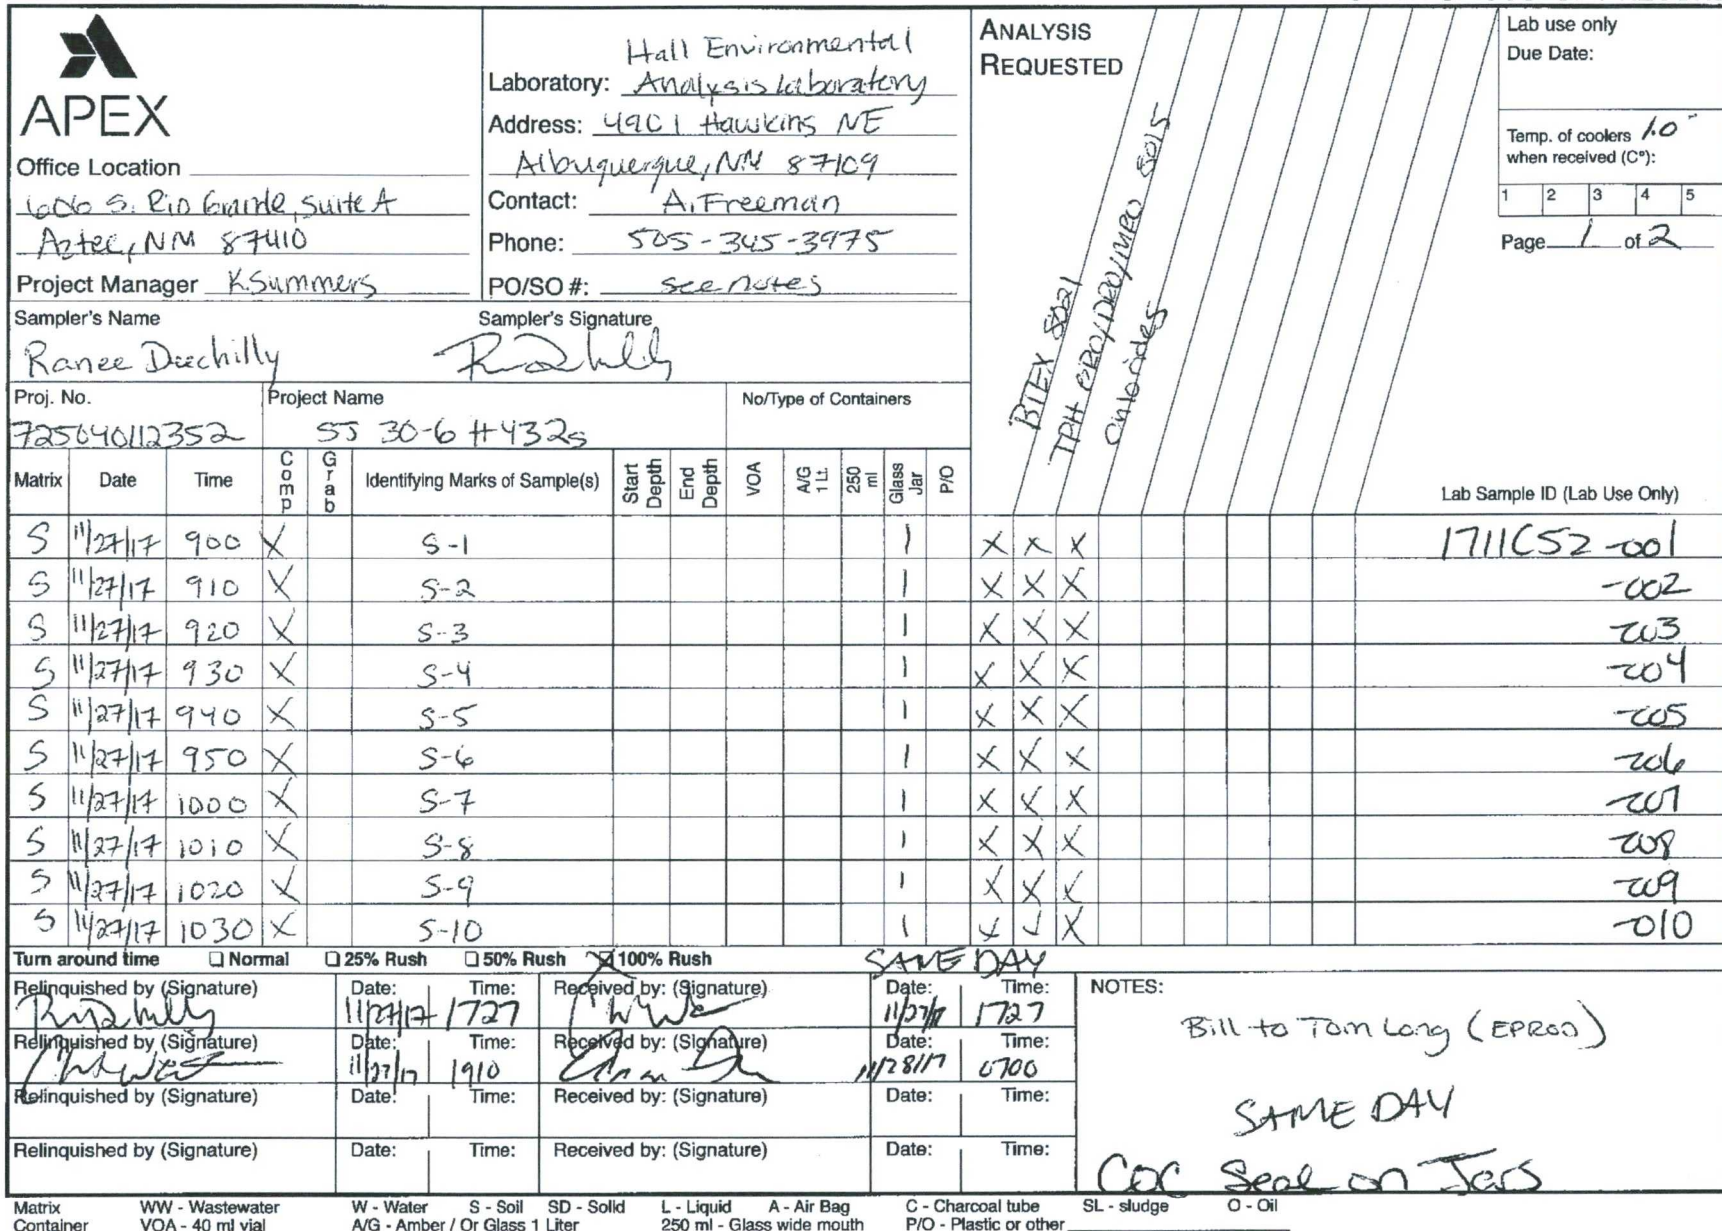 APEX
Office Location
606 S. Rio Grande, Suite A
Aztec, NM 87410
Project Manager K. Summers
Hall Environmental
Laboratory: Analysis Laboratory
Address: 4901 Hawkins NE
Albuquerque, NM 87109
Contact: A. Freeman
Phone: 505-345-3975
PO/SO #: see notes
ANALYSIS
REQUESTED
BTEX 8021
TPH GRO/DRO/MRO 8015
Chlorides
Lab use only
Due Date:
Temp. of coolers 1.0
when received (C°):
1 2 3 4 5
Page 1 of 2
Sampler's Name
Ranee Deechilly
Sampler's Signature
Proj. No.
725040112352
Project Name
SJ 30-6 #432s
No/Type of Containers
Matrix Date Time Comp Grab Identifying Marks of Sample(s) Start Depth End Depth VOA A/G 1 Lt. 250 ml Glass Jar P/O Lab Sample ID (Lab Use Only)
S 11/27/17 900 X S-1 1 X X X 1711C52-001
S 11/27/17 910 X S-2 1 X X X -002
S 11/27/17 920 X S-3 1 X X X -003
S 11/27/17 930 X S-4 1 X X X -004
S 11/27/17 940 X S-5 1 X X X -005
S 11/27/17 950 X S-6 1 X X X -006
S 11/27/17 1000 X S-7 1 X X X -007
S 11/27/17 1010 X S-8 1 X X X -008
S 11/27/17 1020 X S-9 1 X X X -009
S 11/27/17 1030 X S-10 1 X X X -010
Turn around time Normal 25% Rush 50% Rush X 100% Rush SAME DAY
Relinquished by (Signature) Date: Time: Received by: (Signature) Date: Time:
11/27/17 1727 11/27/17 1727
Relinquished by (Signature) Date: Time: Received by: (Signature) Date: Time:
11/27/17 1910 11/28/17 0700
Relinquished by (Signature) Date: Time: Received by: (Signature) Date: Time:
Relinquished by (Signature) Date: Time: Received by: (Signature) Date: Time:
NOTES:
Bill to Tom Long (EPROD)
SAME DAY
COC Seal on Jars
Matrix WW - Wastewater W - Water S - Soil SD - Solid L - Liquid A - Air Bag C - Charcoal tube SL - sludge O - Oil
Container VOA - 40 ml vial A/G - Amber / Or Glass 1 Liter 250 ml - Glass wide mouth P/O - Plastic or other